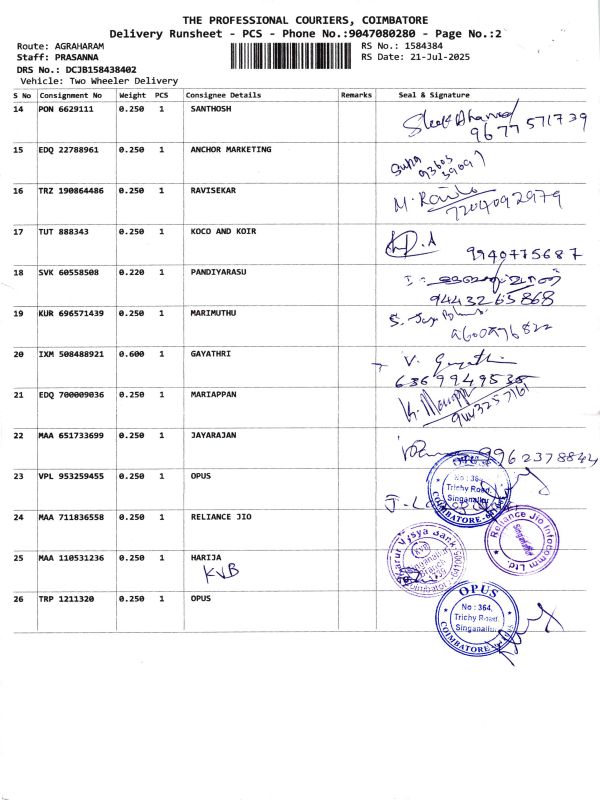 THE PROFESSIONAL COURIERS, COIMBATORE
Delivery Runsheet - PCS - Phone No.:9047080280 - Page No.:2
Route: AGRAHARAM
RS No.: 1584384
Staff: PRASANNA
RS Date: 21-Jul-2025
DRS No.: DCJB158438402
Vehicle: Two Wheeler Delivery
S No Consignment No Weight PCS Consignee Details Remarks Seal & Signature
14 PON 6629111 0.250 1 SANTHOSH
9677571739
15 EDQ 22788961 0.250 1 ANCHOR MARKETING
16 TRZ 190864486 0.250 1 RAVISEKAR
7204092979
17 TUT 888343 0.250 1 KOCO AND KOIR
9940775687
18 SVK 60558508 0.220 1 PANDIYARASU
9443265868
19 KUR 696571439 0.250 1 MARIMUTHU
20 IXM 508488921 0.600 1 GAYATHRI
V. Gayathri
21 EDQ 700009036 0.250 1 MARIAPPAN
22 MAA 651733699 0.250 1 JAYARAJAN
9962378844
23 VPL 953259455 0.250 1 OPUS
OPUS
No : 364,
Trichy Road,
Singanallur,
COIMBATORE
24 MAA 711836558 0.250 1 RELIANCE JIO
Reliance Jio Infocomm Ltd.
Singanallur
25 MAA 110531236 0.250 1 HARIJA
KVB
Karur Vysya Bank
KVB
Singanallur
Branch
Coimbatore
26 TRP 1211320 0.250 1 OPUS
OPUS
No : 364,
Trichy Road,
Singanallur,
COIMBATORE